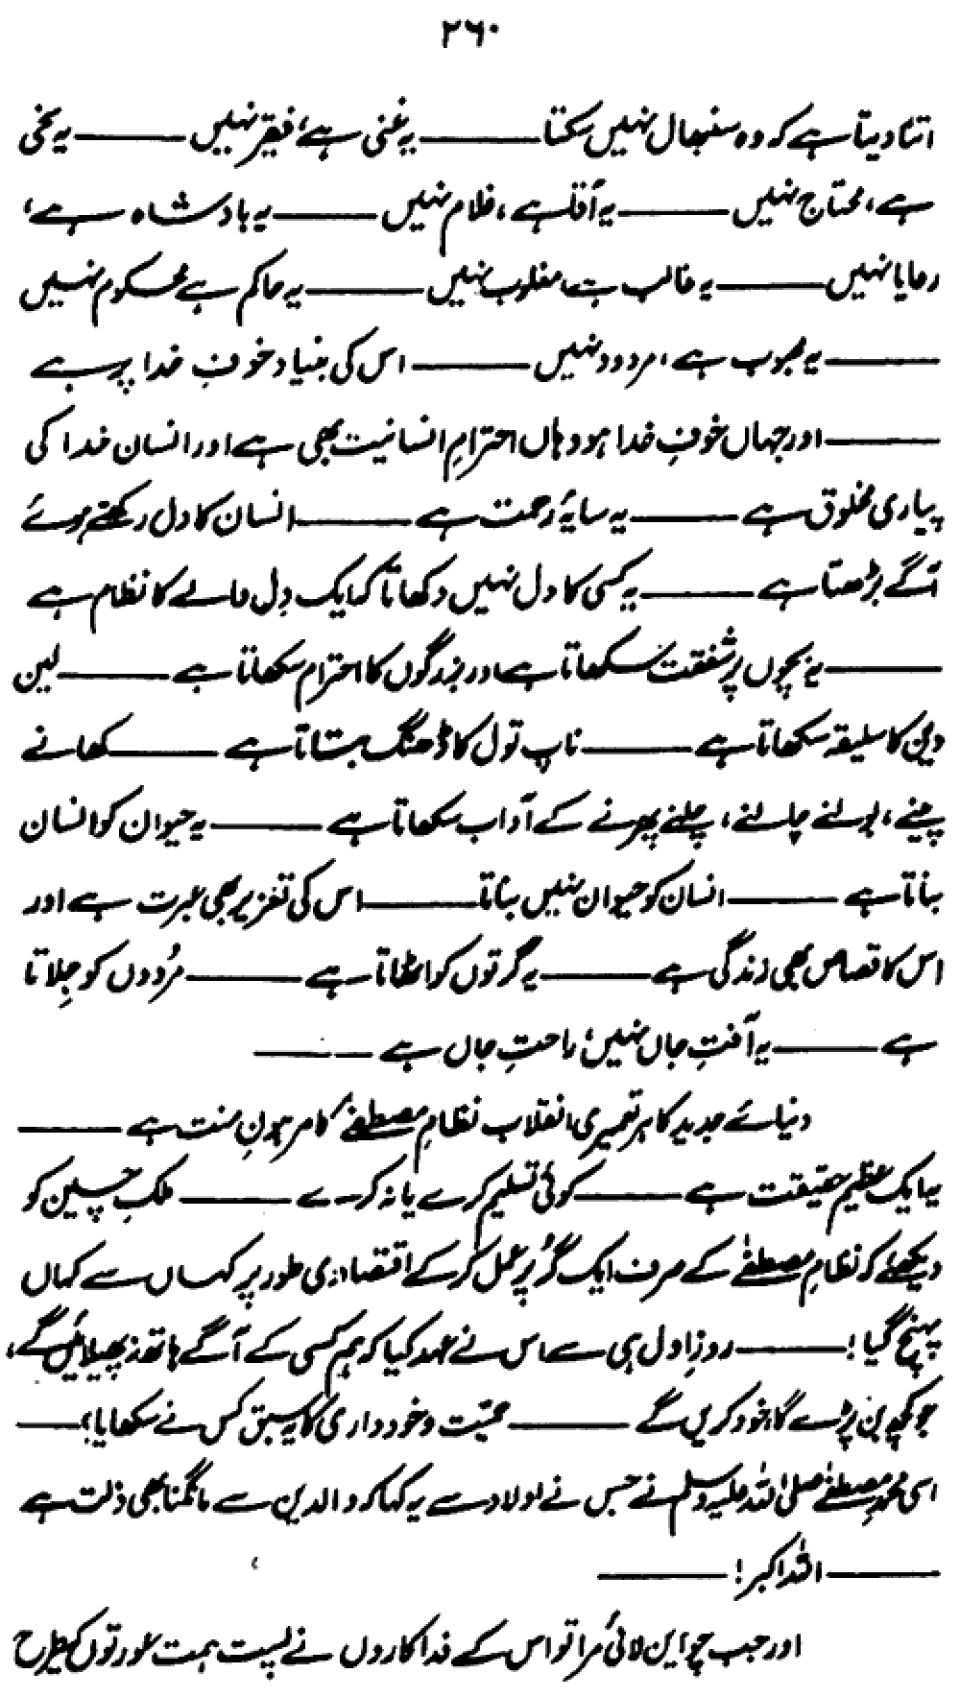 ۲۶۰
اتنا دیتا ہے کہ وہ سنبھال نہیں سکتا ——— یہ غنی ہے، فقیر نہیں ——— یہ سخی
ہے، محتاج نہیں ——— یہ آقا ہے، غلام نہیں ——— یہ بادشاہ ہے،
رعایا نہیں ——— یہ غالب ہے، مغلوب نہیں ——— یہ حاکم ہے محکوم نہیں
——— یہ محبوب ہے، مردود نہیں ——— اس کی بنیاد خوفِ خدا پر ہے
——— اور جہاں خوفِ خدا ہو وہاں احترامِ انسانیت بھی ہے اور انسان خدا کی
پیاری مخلوق ہے ——— یہ سایۂ رحمت ہے ——— انسان کا دل رکھتے ہوئے
آگے بڑھتا ہے ——— یہ کسی کا دل نہیں دکھاتا کہ ایک دِل والے کا نظام ہے
——— یہ بچوں پر شفقت سکھاتا ہے اور بزرگوں کا احترام سکھاتا ہے ——— لین
دین کا سلیقہ سکھاتا ہے ——— ناپ تول کا ڈھنگ بتاتا ہے ——— کھانے
پینے، بولنے چالنے، چلنے پھرنے کے آداب سکھاتا ہے ——— یہ حیوان کو انسان
بناتا ہے ——— انسان کو حیوان نہیں بناتا ——— اس کی تعزیر بھی عبرت ہے اور
اس کا قصاص بھی زندگی ہے ——— یہ گرتوں کو اٹھاتا ہے ——— مُردوں کو جِلاتا
ہے ——— یہ آفتِ جاں نہیں، راحتِ جاں ہے ———
دنیائے جدید کا ہر تعمیری انقلاب نظامِ مصطفےٰ کا مرہونِ منت ہے ———
یہ ایک عظیم حقیقت ہے ——— کوئی تسلیم کرے یا نہ کرے ——— ملکِ چین کو
دیکھئے کہ نظامِ مصطفےٰ کے صرف ایک گُر پر عمل کر کے اقتصادی طور پر کہاں سے کہاں
پہنچ گیا! ——— روزِ اول ہی سے اس نے عہد کیا کہ ہم کسی کے آگے ہاتھ نہ پھیلائیں گے،
جو کچھ بن پڑے گا، خود کریں گے ——— حمیّت و خودداری کا یہ سبق کس نے سکھایا؟ ———
اسی محمدِ مصطفےٰ صلی اللہ علیہ وسلم نے جس نے اولاد سے یہ کہا کہ والدین سے مانگنا بھی ذلت ہے
——— اللہ اکبر! ———
اور جب چواین لائی مرا تو اس کے فداکاروں نے پست ہمت عورتوں کی طرح